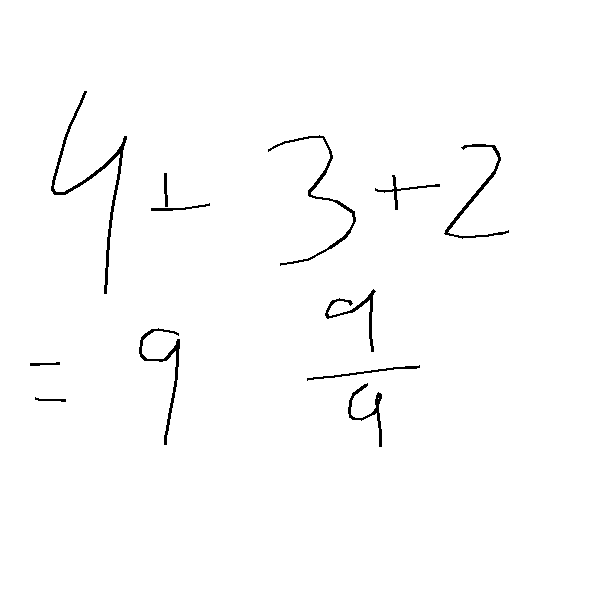 4 + 3 + 2
= 9 9/9